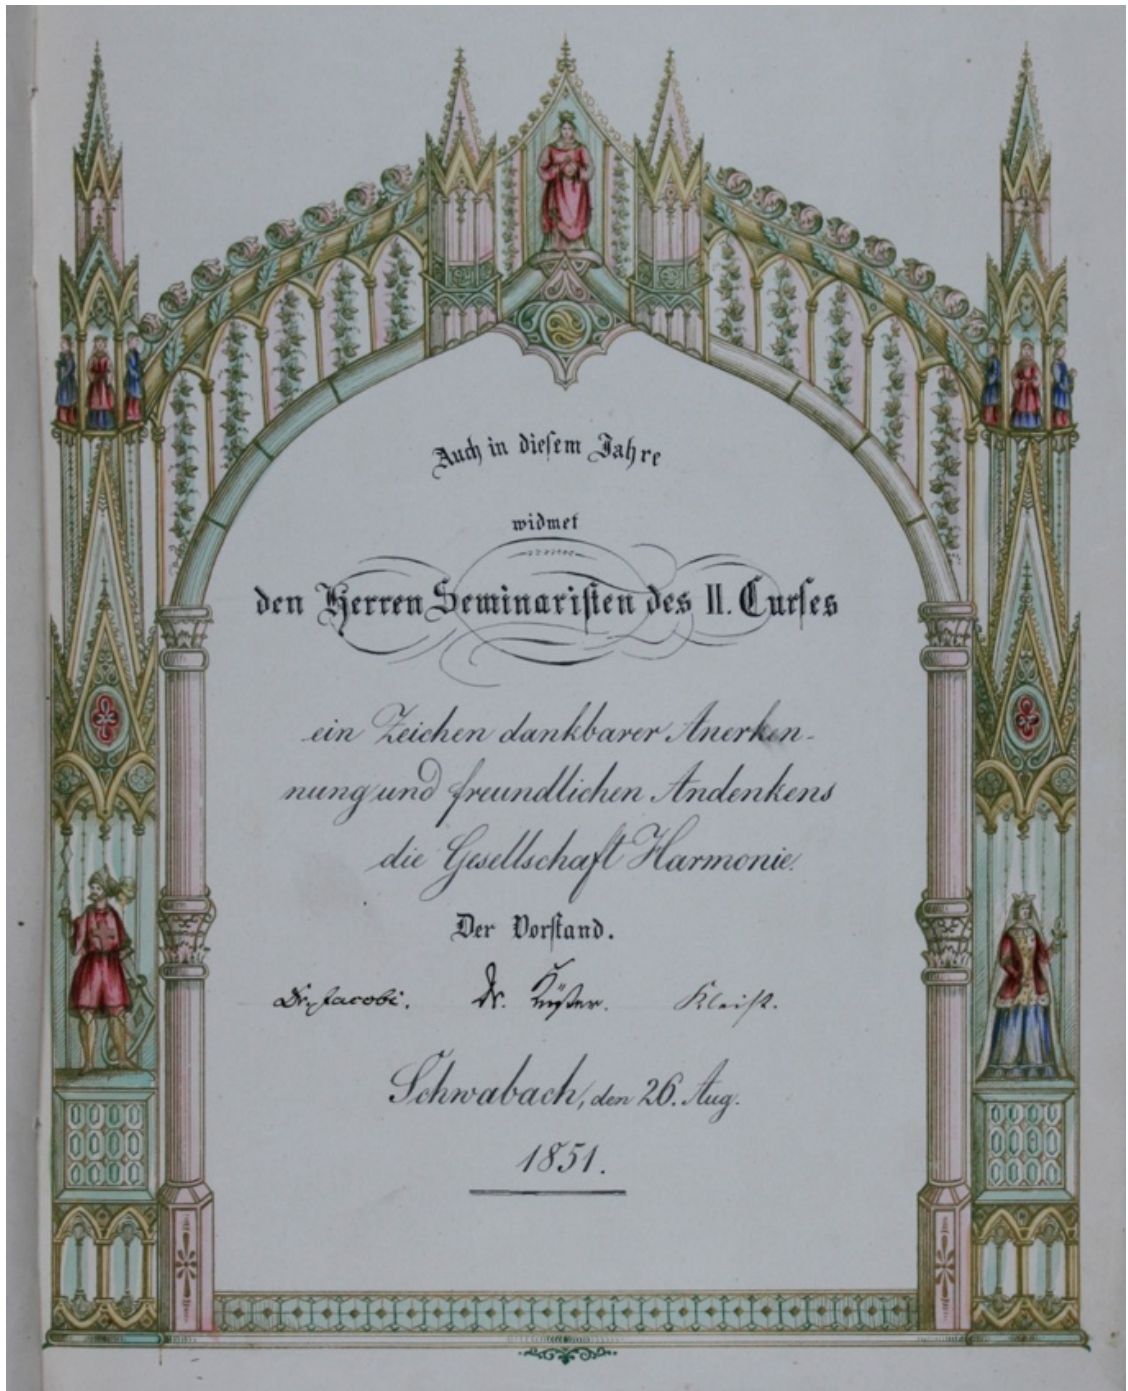 Auch in dieſem Jahre
widmet
den Herren Seminariſten des II. Curſes
ein Zeichen dankbarer Anerken-
nung und freundlichen Andenkens
die Gesellschaft Harmonie.
Der Vorſtand.
Dr. Jacobi. Dr. Kleiſt.
Schwabach, den 26. Aug.
1851.